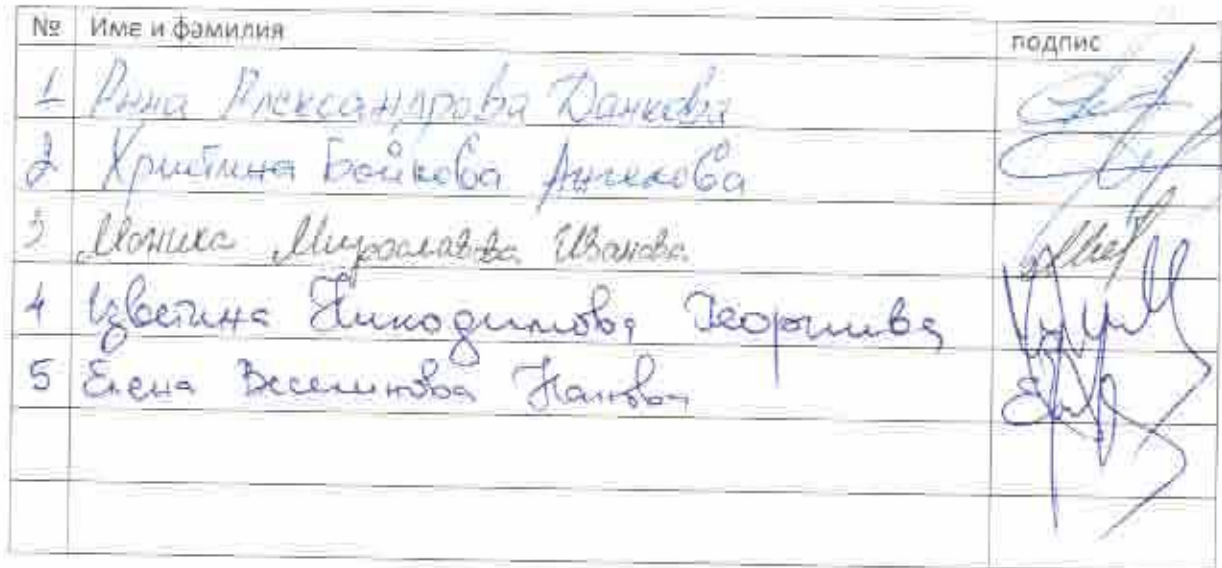 № Име и фамилия подпис
1 Анна Александрова Данкова
2 Християна Бойкова Ангелова
3 Моника Мирославова Иванова
4 Цветина Никодимова Георгиева
5 Елена Веселинова Нанова